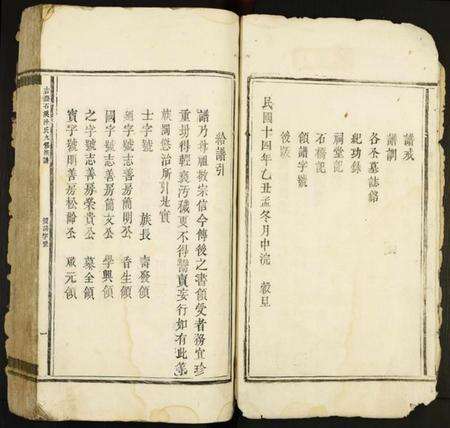 譜戒
譜調
各公墓誌銘
紀功錄
祠堂記
石橋記
領譜字號
後跋
民國十四年乙丑孟冬月中浣 穀旦
給譜引
譜乃尊祖敬宗信今傳後之書領受者務宜珍
重毋得輕褻污穢更不得鬻賣妄行如有此等
族調懲治所引是實
士字號 族長 壽發領
字號志善房簡明公 香生領
國字號志善房簡文公 學興領
之字號明善房榮貴公 基全領
寶字號明善房松齡公 元領
領譜字號